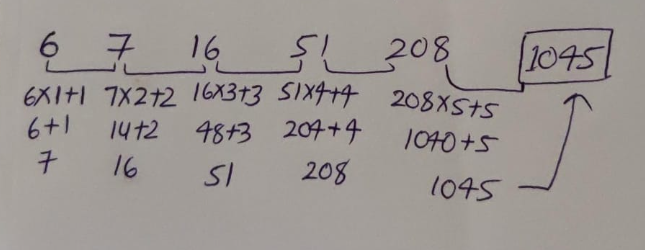 6 7 16 51 208 1045
6×1+1 7×2+2 16×3+3 51×4+4 208×5+5
6+1 14+2 48+3 204+4 1040+5
7 16 51 208 1045